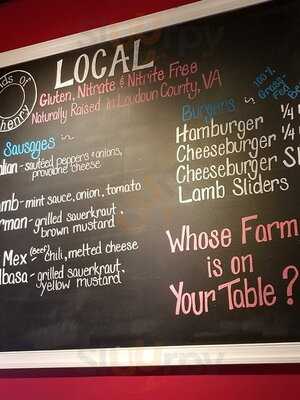 LOCAL
Gluten, Nitrate & Nitrite Free
Naturally Raised in Loudoun County, VA
Sausages
alian - sautéed peppers & onions,
provolone cheese
mb - mint sauce, onion, tomato
rman - grilled sauerkraut,
brown mustard
Mex (Beef) - chili, melted cheese
lbasa - grilled sauerkraut,
yellow mustard
Burgers
100%
Grass-
Hamburger 1/4
Cheeseburger 1/4
Cheeseburger Sl
Lamb Sliders
Whose Farm
is on
Your Table?